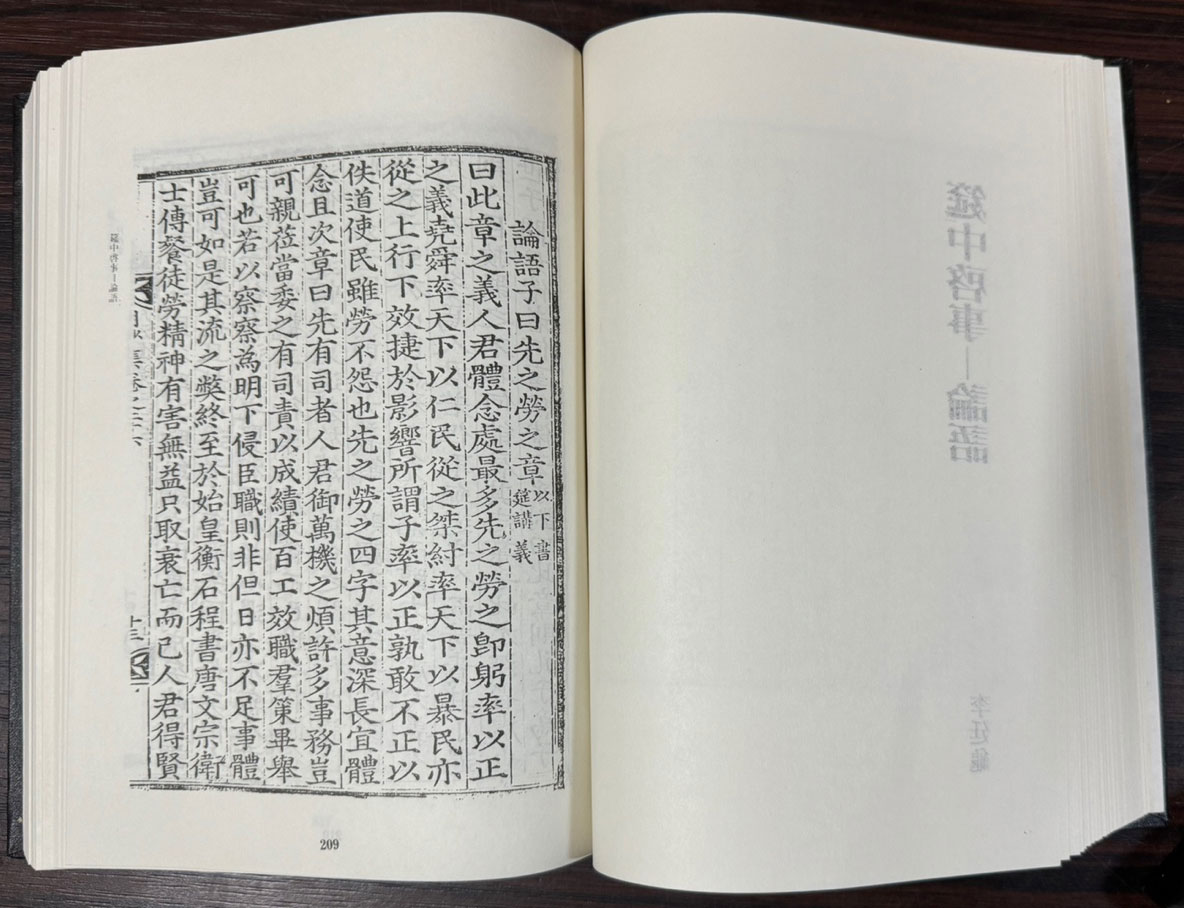 論語子曰先之勞之章以下書筵講義
曰此章之義人君體念處最多先之勞之卽躬率以正
之義堯舜率天下以仁民從之桀紂率天下以暴民亦
從之上行下效捷於影響所謂子率以正孰敢不正以
佚道使民雖勞不怨也先之勞之四字其意深長宜體
念且次章曰先有司者人君御萬機之煩許多事務豈
可親莅當委之有司責以成績使百工效職羣策畢舉
可也若以察察為明下侵臣職則非但日亦不足事體
豈可如是其流之獘終至於始皇衡石程書唐文宗衛
士傳餐徒勞精神有害無益只取衰亡而已人君得賢
十三
筵中啓事─論語
209
筵中啓事─論語
李廷龜